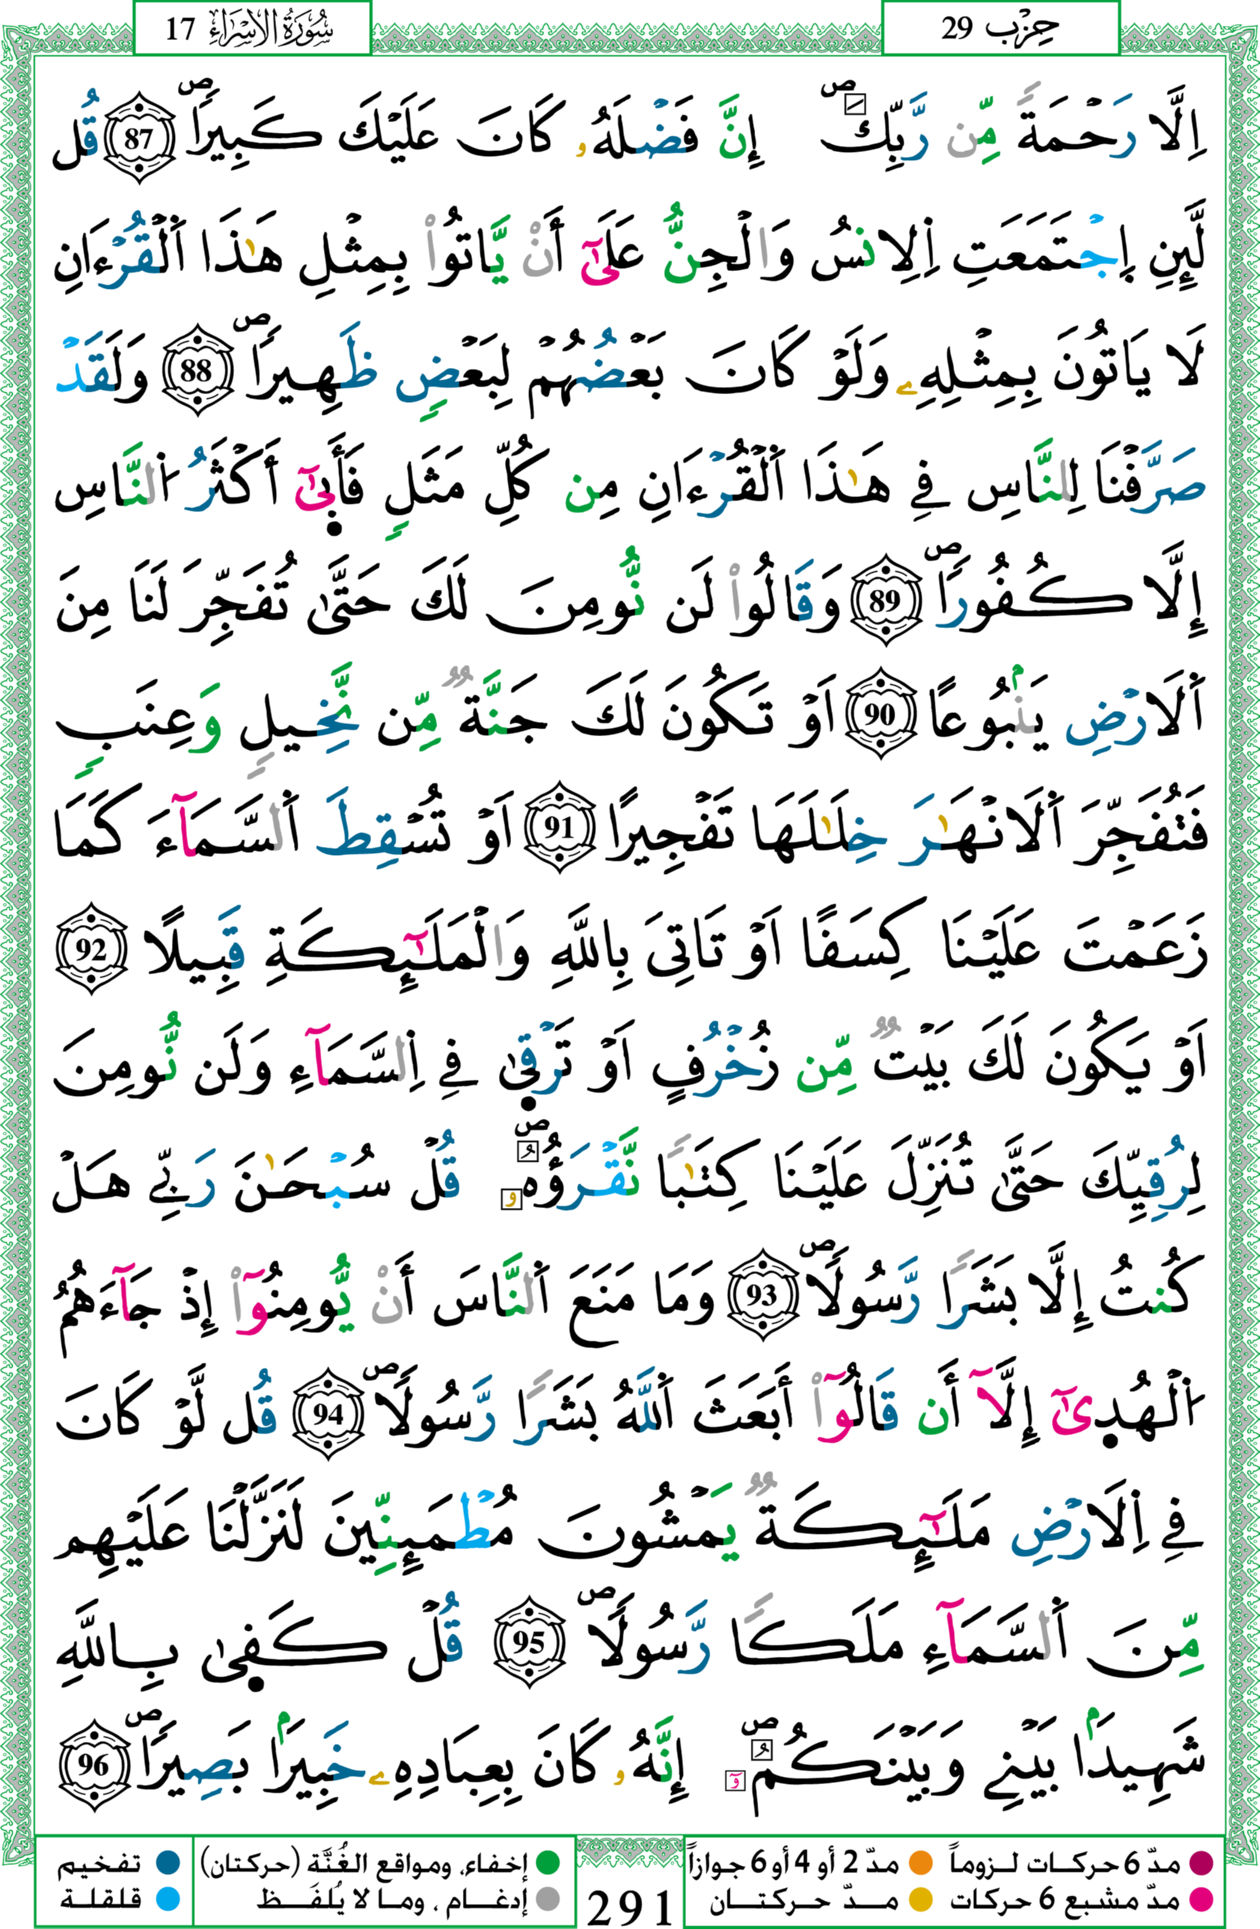 سُورَةُ الْإِسْرَاءِ 17
حِزْب 29
اِلَّا رَحْمَةً مِّن رَّبِّكَۖ إِنَّ فَضْلَهُۥ كَانَ عَلَيْكَ كَبِيراًۖ 87 قُل
لَّئِنِ اِجْتَمَعَتِ اِ۬لِانسُ وَالْجِنُّ عَلَىٰٓ أَنْ يَّاتُواْ بِمِثْلِ هَٰذَا اَ۬لْقُرْءَانِ
لَا يَاتُونَ بِمِثْلِهِۦ وَلَوْ كَانَ بَعْضُهُمْ لِبَعْضٖ ظَهِيراًۖ 88 وَلَقَدْ
صَرَّفْنَا لِلنَّاسِ فِے هَٰذَا اَ۬لْقُرْءَانِ مِن كُلِّ مَثَلٖ فَأَب۪ىٰٓ أَكْثَرُ اُ۬لنَّاسِ
إِلَّا كُفُوراًۖ 89 وَقَالُواْ لَن نُّومِنَ لَكَ حَتَّىٰ تُفَجِّرَ لَنَا مِنَ
اَ۬لَارْضِ يَنۢبُوعاً 90 اَوْ تَكُونَ لَكَ جَنَّةٞ مِّن نَّخِيلٖ وَعِنَبٖ
فَتُفَجِّرَ اَ۬لَانْهَٰرَ خِلَٰلَهَا تَفْجِيراً 91 اَوْ تُسْقِطَ اَ۬لسَّمَآءَ كَمَا
زَعَمْتَ عَلَيْنَا كِسَفاً اَوْ تَاتِيَ بِاللَّهِ وَالْمَلَٰٓئِكَةِ قَبِيلاً 92
اَوْ يَكُونَ لَكَ بَيْتٞ مِّن زُخْرُفٍ اَوْ تَرْق۪ىٰ فِے اِ۬لسَّمَآءِ وَلَن نُّومِنَ
لِرُقِيِّكَ حَتَّىٰ تُنَزِّلَ عَلَيْنَا كِتَٰباً نَّقْرَؤُهُۥۖ قُلْ سُبْحَٰنَ رَبِّے هَلْ
كُنتُ إِلَّا بَشَراً رَّسُولاًۖ 93 وَمَا مَنَعَ اَ۬لنَّاسَ أَنْ يُّومِنُوٓاْ إِذْ جَآءَهُمُ
اُ۬لْهُد۪ىٰٓ إِلَّآ أَن قَالُوٓاْ أَبَعَثَ اَ۬للَّهُ بَشَراً رَّسُولاًۖ 94 قُل لَّوْ كَانَ
فِے اِ۬لَارْضِ مَلَٰٓئِكَةٞ يَمْشُونَ مُطْمَئِنِّينَ لَنَزَّلْنَا عَلَيْهِم
مِّنَ اَ۬لسَّمَآءِ مَلَكاً رَّسُولاًۖ 95 قُلْ كَف۪ىٰ بِاللَّهِ
شَهِيداَۢ بَيْنِے وَبَيْنَكُمُۥٓۖ إِنَّهُۥ كَانَ بِعِبَادِهِۦ خَبِيراَۢ بَصِيراًۖ 96
مدّ 6 حركات لـزوماً مدّ 2 أو 4 أو 6 جوازاً
مدّ مشبع 6 حركات مـــدّ حـــركـتــان
291
إخفاء، ومواقع الغُنَّة (حركتان) تفخيم
إدغـــام ، ومـــا لا يُـلـفَــــظ قـلـقـلـة